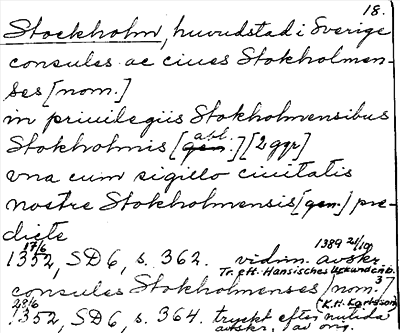 18.
Stockholm, huvudstad i Sverige
consules ac ciues Stokholmen-
ses [nom.]
in priuilegiis Stokholmensibus
Stokholmis [gen. abl.] [2 ggr]
vna cum sigillo ciuitatis
nostre Stokholmensis [gen.] pre-
dicte
1352 17/6, SD 6, s. 362. vidim. avskr. 1389 21/10
Tr. eft. Hansisches Urkundenb.
consules Stokholmenses [nom.] 3?
(K.H. Karlsson)
1352 28/6, SD 6, s. 364. tryckt efter nutida
avskr. av orig.